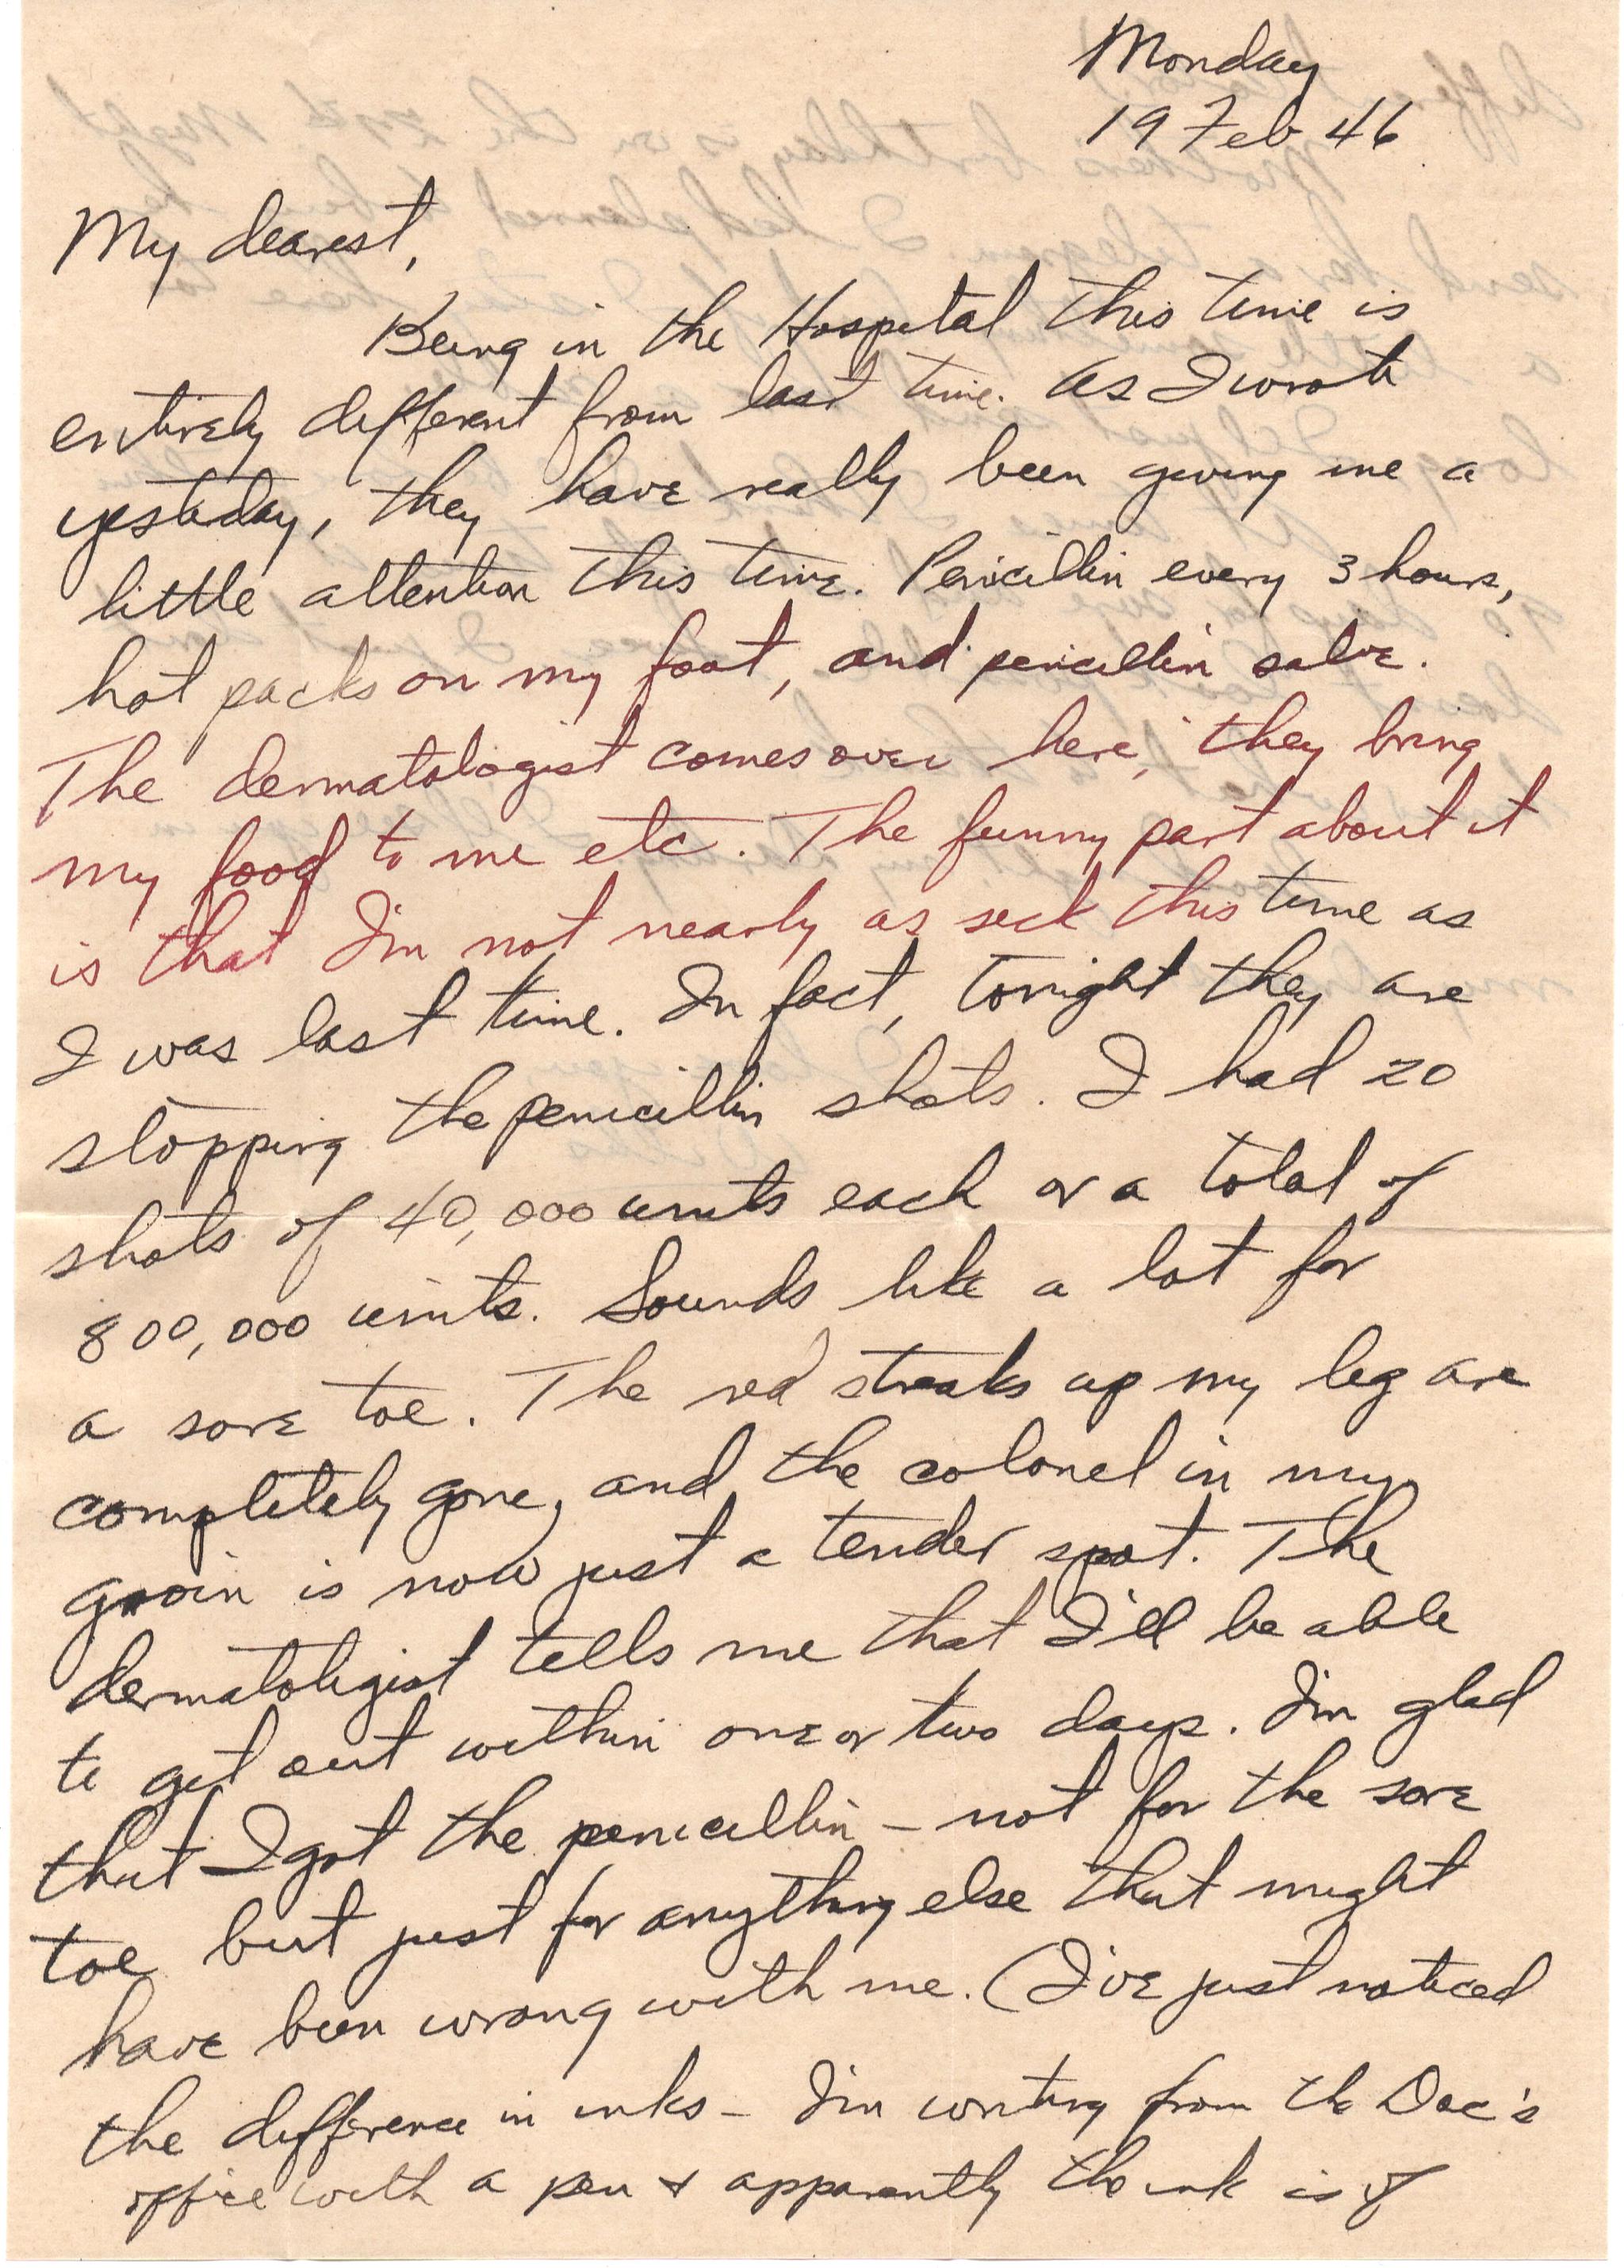 Monday
19 Feb 46
My dearest,
Being in the Hospital this time is
entirely different from last time. As I wrote
yesteday, they have really been giving me a
little attention this time. Penicillin every 3 hours,
hot packs on my foot, and penicillin salve.
The dermatologist comes over here, they bring
my food to me etc. The funny part about it
is that I'm not nearly as sick this time as
I was last time. In fact, tonight they are
stopping the penicillin shots. I had 20
shots of 40,000 units each or a total of
800,000 units. Sounds like a lot for
a sore toe. The red streaks up my leg are
completely gone, and the colonel in my
groin is now just a tender spot. The
dermatoligist tells me that I'll be able
to get out within one or two days. I'm glad
that I got the penicillin – not for the sore
toe but just for anything else that might
have been wrong with me. (I've just noticed
the difference in inks – I'm writing from the Doc's
office with a pen & apparently the ink is of